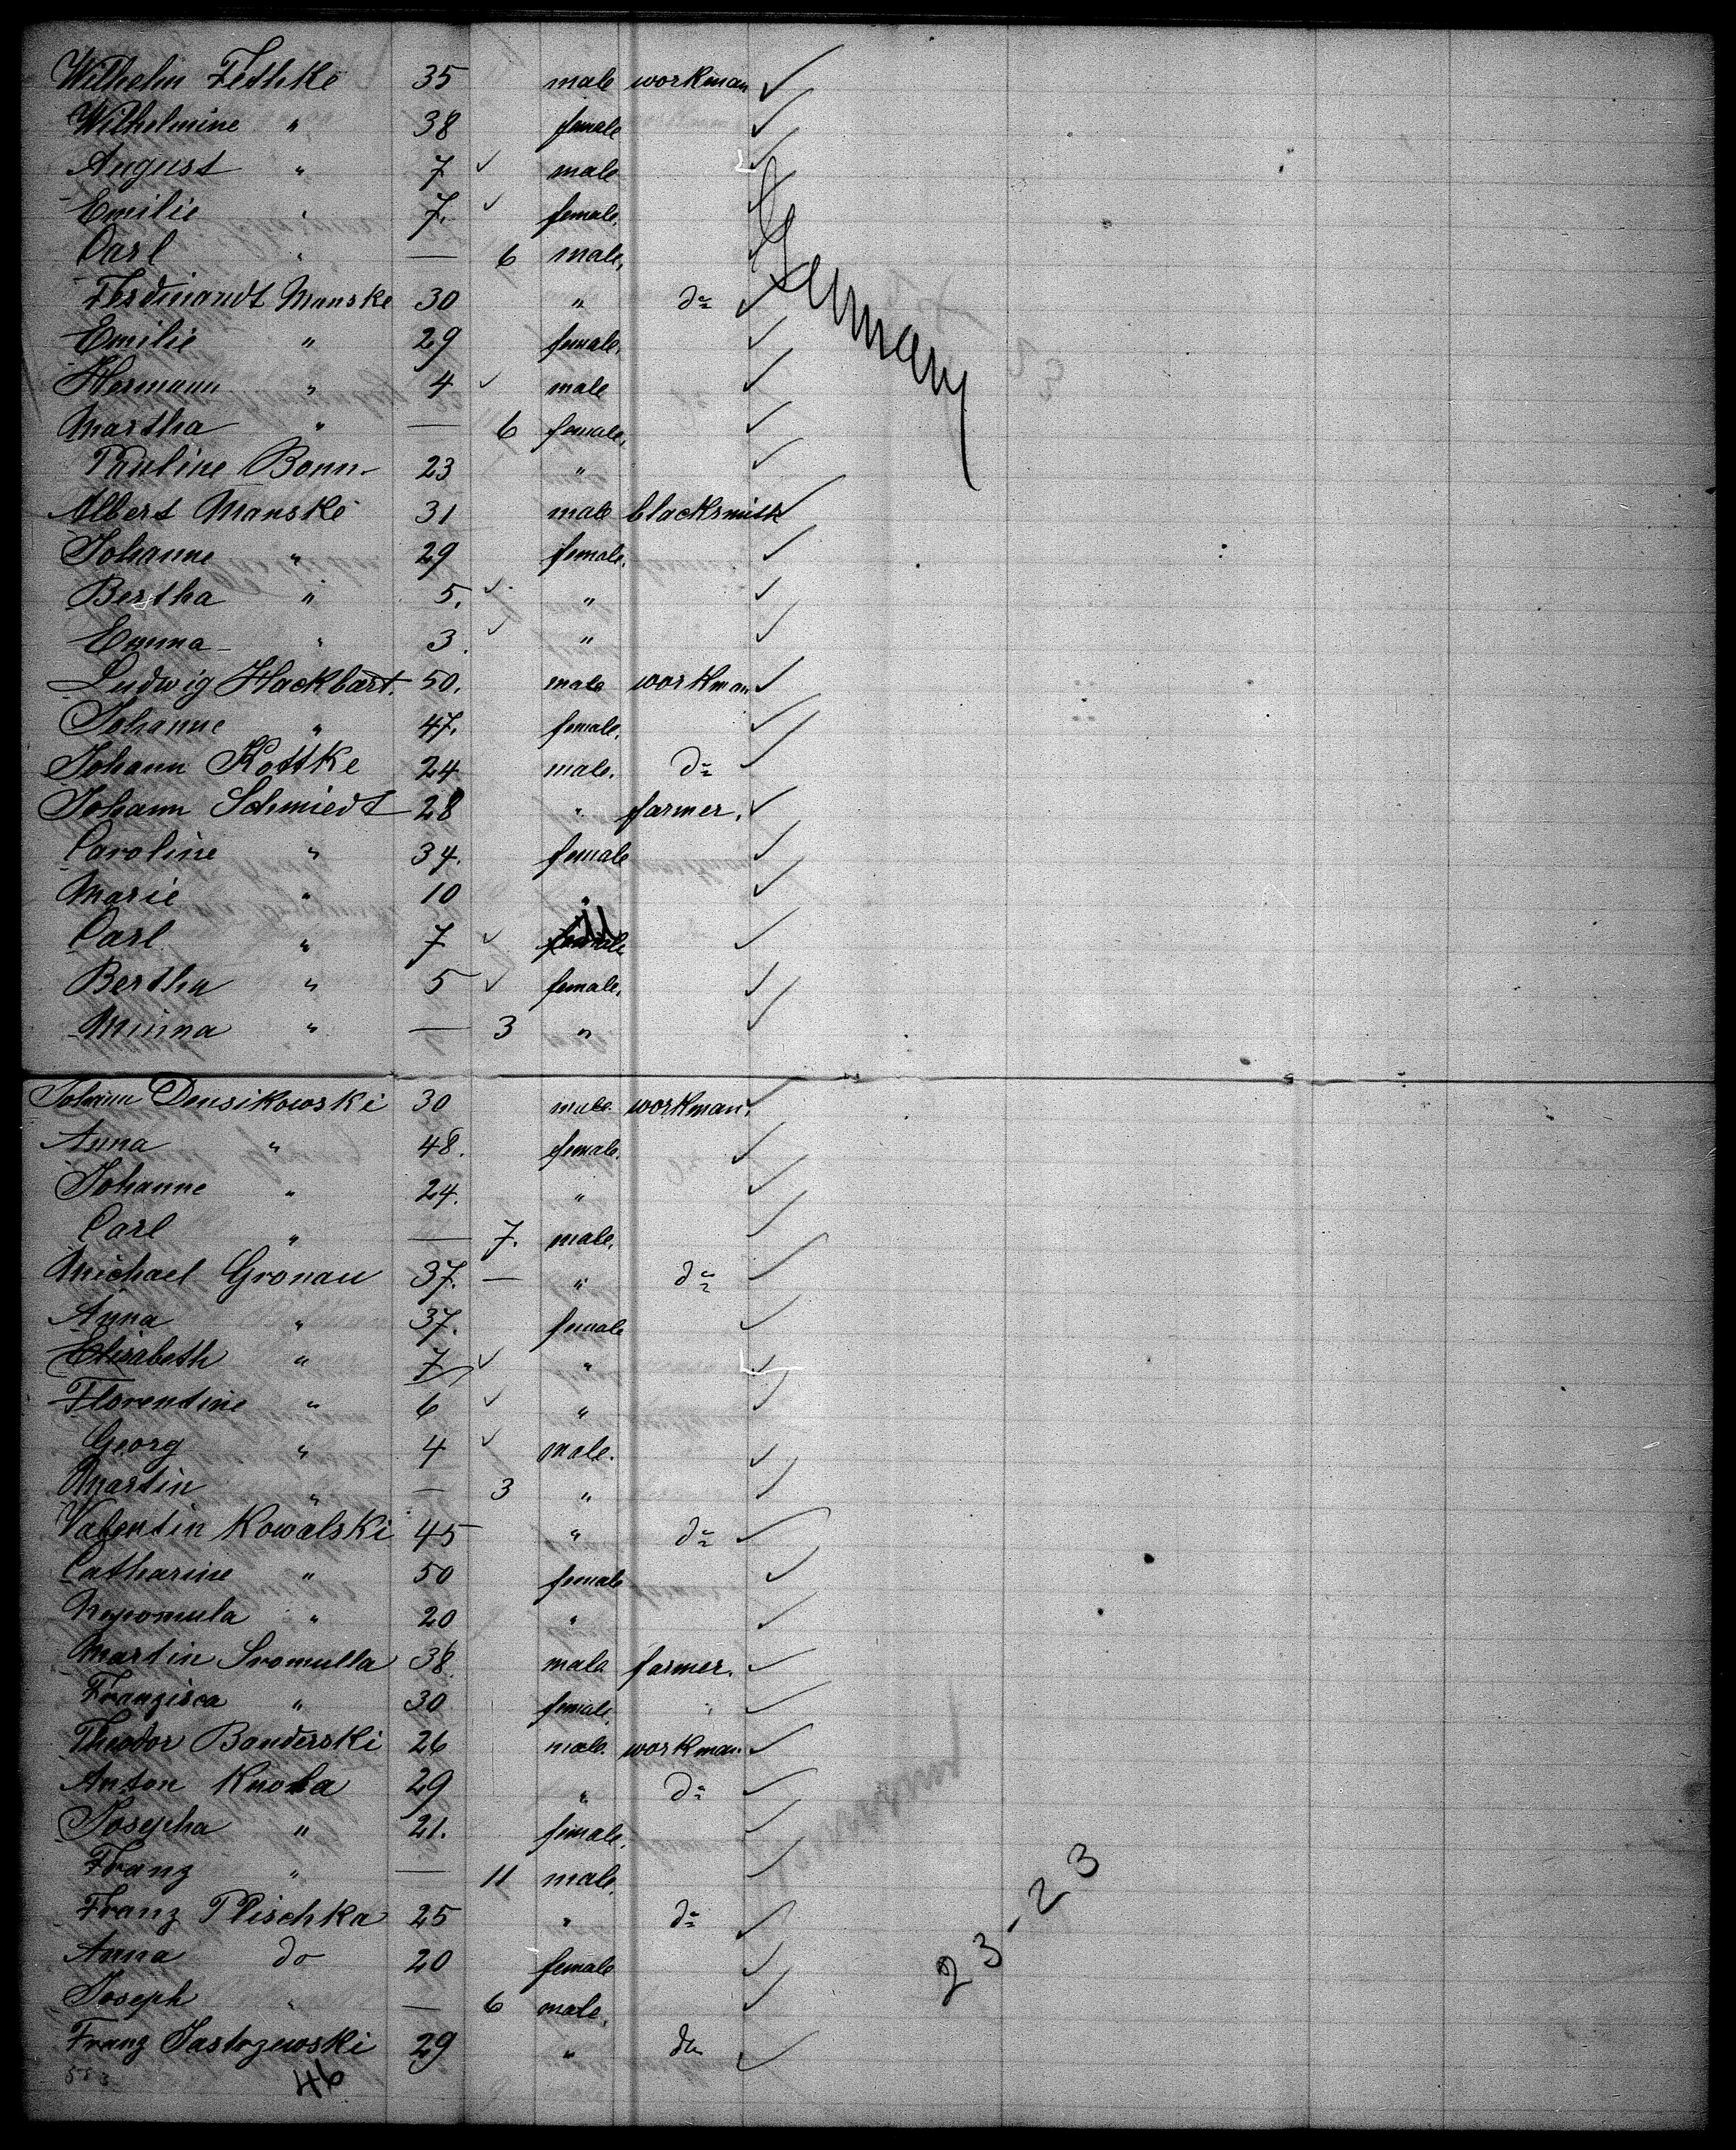 Wilhelm Fethke 35 male workman
Wilhelmine " 38 female
August " 7 male
Emilie " 7. female,
Carl " — 6 male,
Ferdinandt Manske 30 " do
Emilie " 29 female,
Hermann " 4 male
Martha " — 6 female,
Pauline Bonn 23 "
Albert Manske 31 male blacksmith
Johanne " 29 female,
Bertha " 5. "
Emma " 3. "
Ludwig Hackbart. 50. male workman
Johanne " 47. female,
Johann Kottke 24 male. do
Johann Schmiedt 28 " farmer.
Caroline " 34. female
Marie " 10 "
Carl " 7 female
Bertha " 5 female,
Minna " — 3 "
Johann Densikowski 30 male workman.
Anna " 48. female.
Johanne " 24. "
Carl " — 7. male,
Michael Gronau 37. — " do
Anna " 37. female
Elisabeth " 7 "
Florentine " 6 "
Georg " 4 male.
Martin " — 3 "
Valentin Kowalski 45 " do
Catharine " 50 female
Nepomula " 20 "
Martin Sromulla 38 male farmer.
Franzisca " 30 female,
Theodor Banderski 26 male workman.
Anton Knola 29 " do
Josepha " 21. female,
Franz " — 11 male,
Franz Plischka 25 " do
Anna do 20 female
Joseph " — 6 male,
Franz Jastrzewski 29 " do
46
Germany
23-23